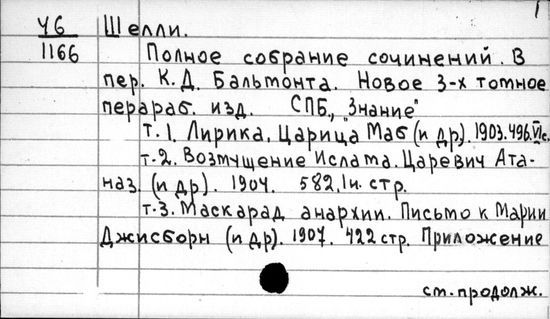 1
У6 Шелли.
1166 Полное собрание сочинений. В
пер. К.Д. Бальмонта. Новое 3-х томное
перераб. изд. СПБ., "Знание"
т.1. Лирика. Царица Маб (и др). 1903. 496. VIс.
т.2. Возмущение Ислама. Царевич Ата-
наз. (и др). 1904. 582, 1н. стр.
т.3. Маскарад анархии. Письмо к Марии
Джисборн (и др). 1907. 422 стр. Приложение
см. продолж.